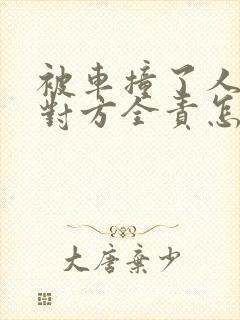 被車撞了人
對方全責怎
大唐棄少